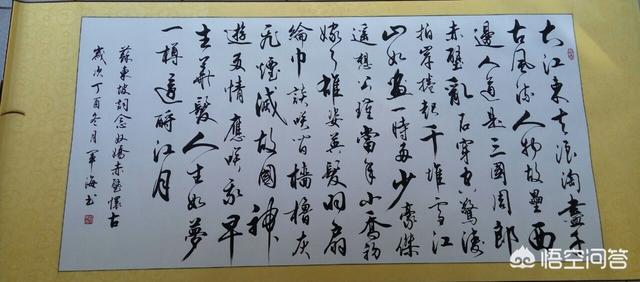 大江東去浪淘盡千
古風流人物故壘西
邊人道是三國周郎
赤壁亂石穿空驚濤
拍岸捲起千堆雪江
山如畫一時多少豪傑
遥想公瑾當年小喬初
嫁了雄姿英發羽扇
綸巾談笑间檣櫓灰
飛煙滅故國神
遊多情應笑我早
生華髮人生如夢
一樽還酹江月
蘇東坡詞念奴嬌赤壁懷古
歲次丁酉冬月軍海书
悟空问答